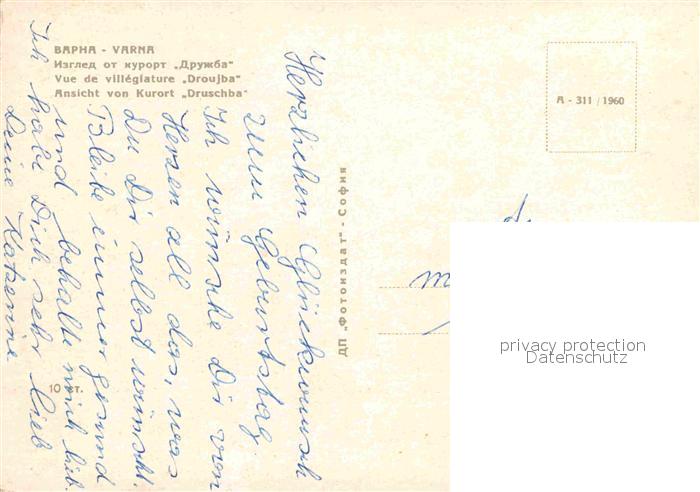 ВАРНА - VARNA
Изглед от курорт „Дружба"
Vue de villégiature „Droujba"
Ansicht von Kurort „Druschba"
A - 311 / 1960
Herzlichen Glückwunsch
zum Geburtstag
Ich wünsche Dir von
Herzen all das, was
Du Dir selbst wünscht.
Bleibe immer gesund
und behalte mich lieb.
Ich habe Dich sehr lieb
Deine
ДП „Фотоиздат" - София
10 ст.
privacy protection
Datenschutz